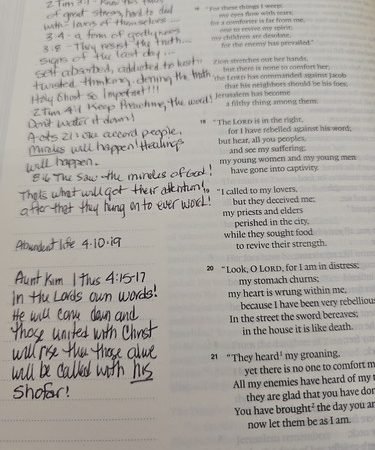 2 Tim 3:1 Know this
of great stress, hard to deal
with - lovers of themselves...
3-4 - a form of godlyness
3:8 - They resist the truth...
signs of the last day
self absorbed, addicted to lust
twisted thinking, denying the truth
Holy Ghost so Important!!!
2 Tim 4:1 Keep Preaching the word!
Don't water it down!
Acts 2:1 one accord people.
Miracles will happen! Healings
will happen.
8:6 The saw the miracles of God!
That's what will get their attention!
after that they hung on to ever word!
Abundent life 4-10-19
Aunt Kim 1 Thes 4:15-17
In the Lords own words!
He will come down and
those united with Christ
will rise then those alive
will be called with his
shofar!
16 "For these things I weep;
my eyes flow with tears;
for a comforter is far from me,
one to revive my spirit;
my children are desolate,
for the enemy has prevailed."
Zion stretches out her hands,
but there is none to comfort her;
the LORD has commanded against Jacob
that his neighbors should be his foes;
Jerusalem has become
a filthy thing among them.
18 "The LORD is in the right,
for I have rebelled against his word;
but hear, all you peoples,
and see my suffering;
my young women and my young men
have gone into captivity.
"I called to my lovers,
but they deceived me;
my priests and elders
perished in the city,
while they sought food
to revive their strength.
20 "Look, O LORD, for I am in distress;
my stomach churns;
my heart is wrung within me,
because I have been very rebellious
In the street the sword bereaves;
in the house it is like death.
21 "They heard¹ my groaning,
yet there is no one to comfort m
All my enemies have heard of my t
they are glad that you have don
You have brought² the day you an
now let them be as I am.